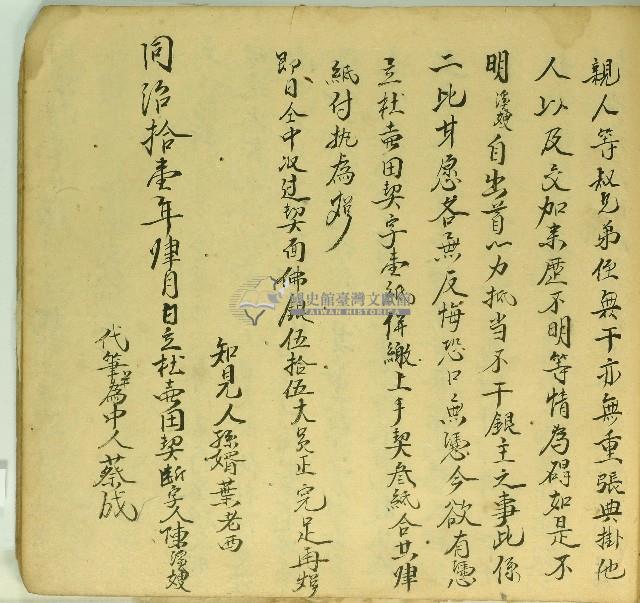 親人等叔兄弟侄無干亦無重張典掛他
人以及交加来歷不明等情為碍如是不
明嫂自出首一力抵当不干銀主之事此係
二比甘愿各無反悔恐口無憑今欲有憑
立杜壹田契字壹紙併繳上手契叁紙合共肆
紙付执為炤
即日仝中收过契面佛銀伍拾伍大員正完足再炤
知見人孫婿葉老西
同治拾壹年肆月日立杜壹田契断字人陳嫂
代筆為中人蔡成
國史館臺灣文獻館
TAIWAN HISTORICA